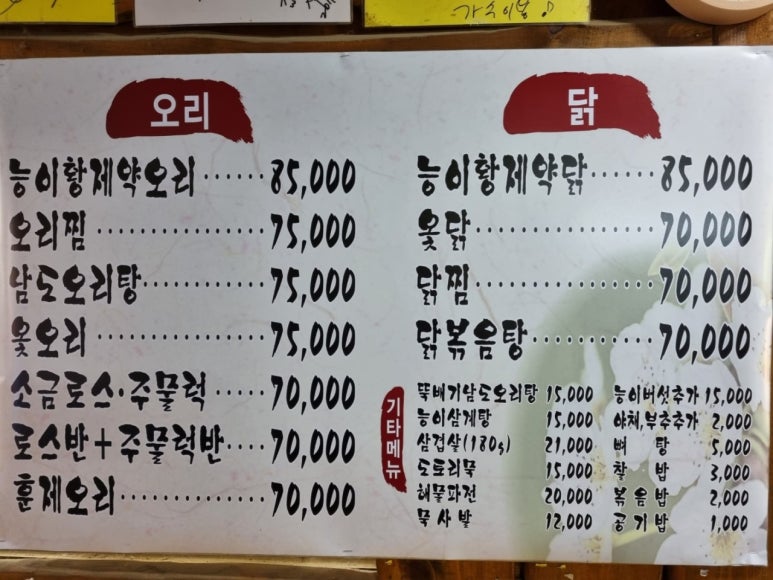 가수이봉♪
오리
능이황제약오리······85,000
오리찜···············75,000
남도오리탕··········75,000
옻오리···············75,000
소금로스·주물럭·····70,000
로스반+주물럭반····70,000
훈제오리·············70,000
닭
능이황제약닭······85,000
옻닭················70,000
닭찜················70,000
닭볶음탕···········70,000
기타메뉴
뚝배기남도오리탕 15,000
능이삼계탕 15,000
삼겹살(180g) 21,000
도토리묵 15,000
해물파전 20,000
묵사발 12,000
능이버섯추가 15,000
야채,부추추가 2,000
뼈 탕 5,000
찰 밥 3,000
볶음밥 2,000
공기밥 1,000